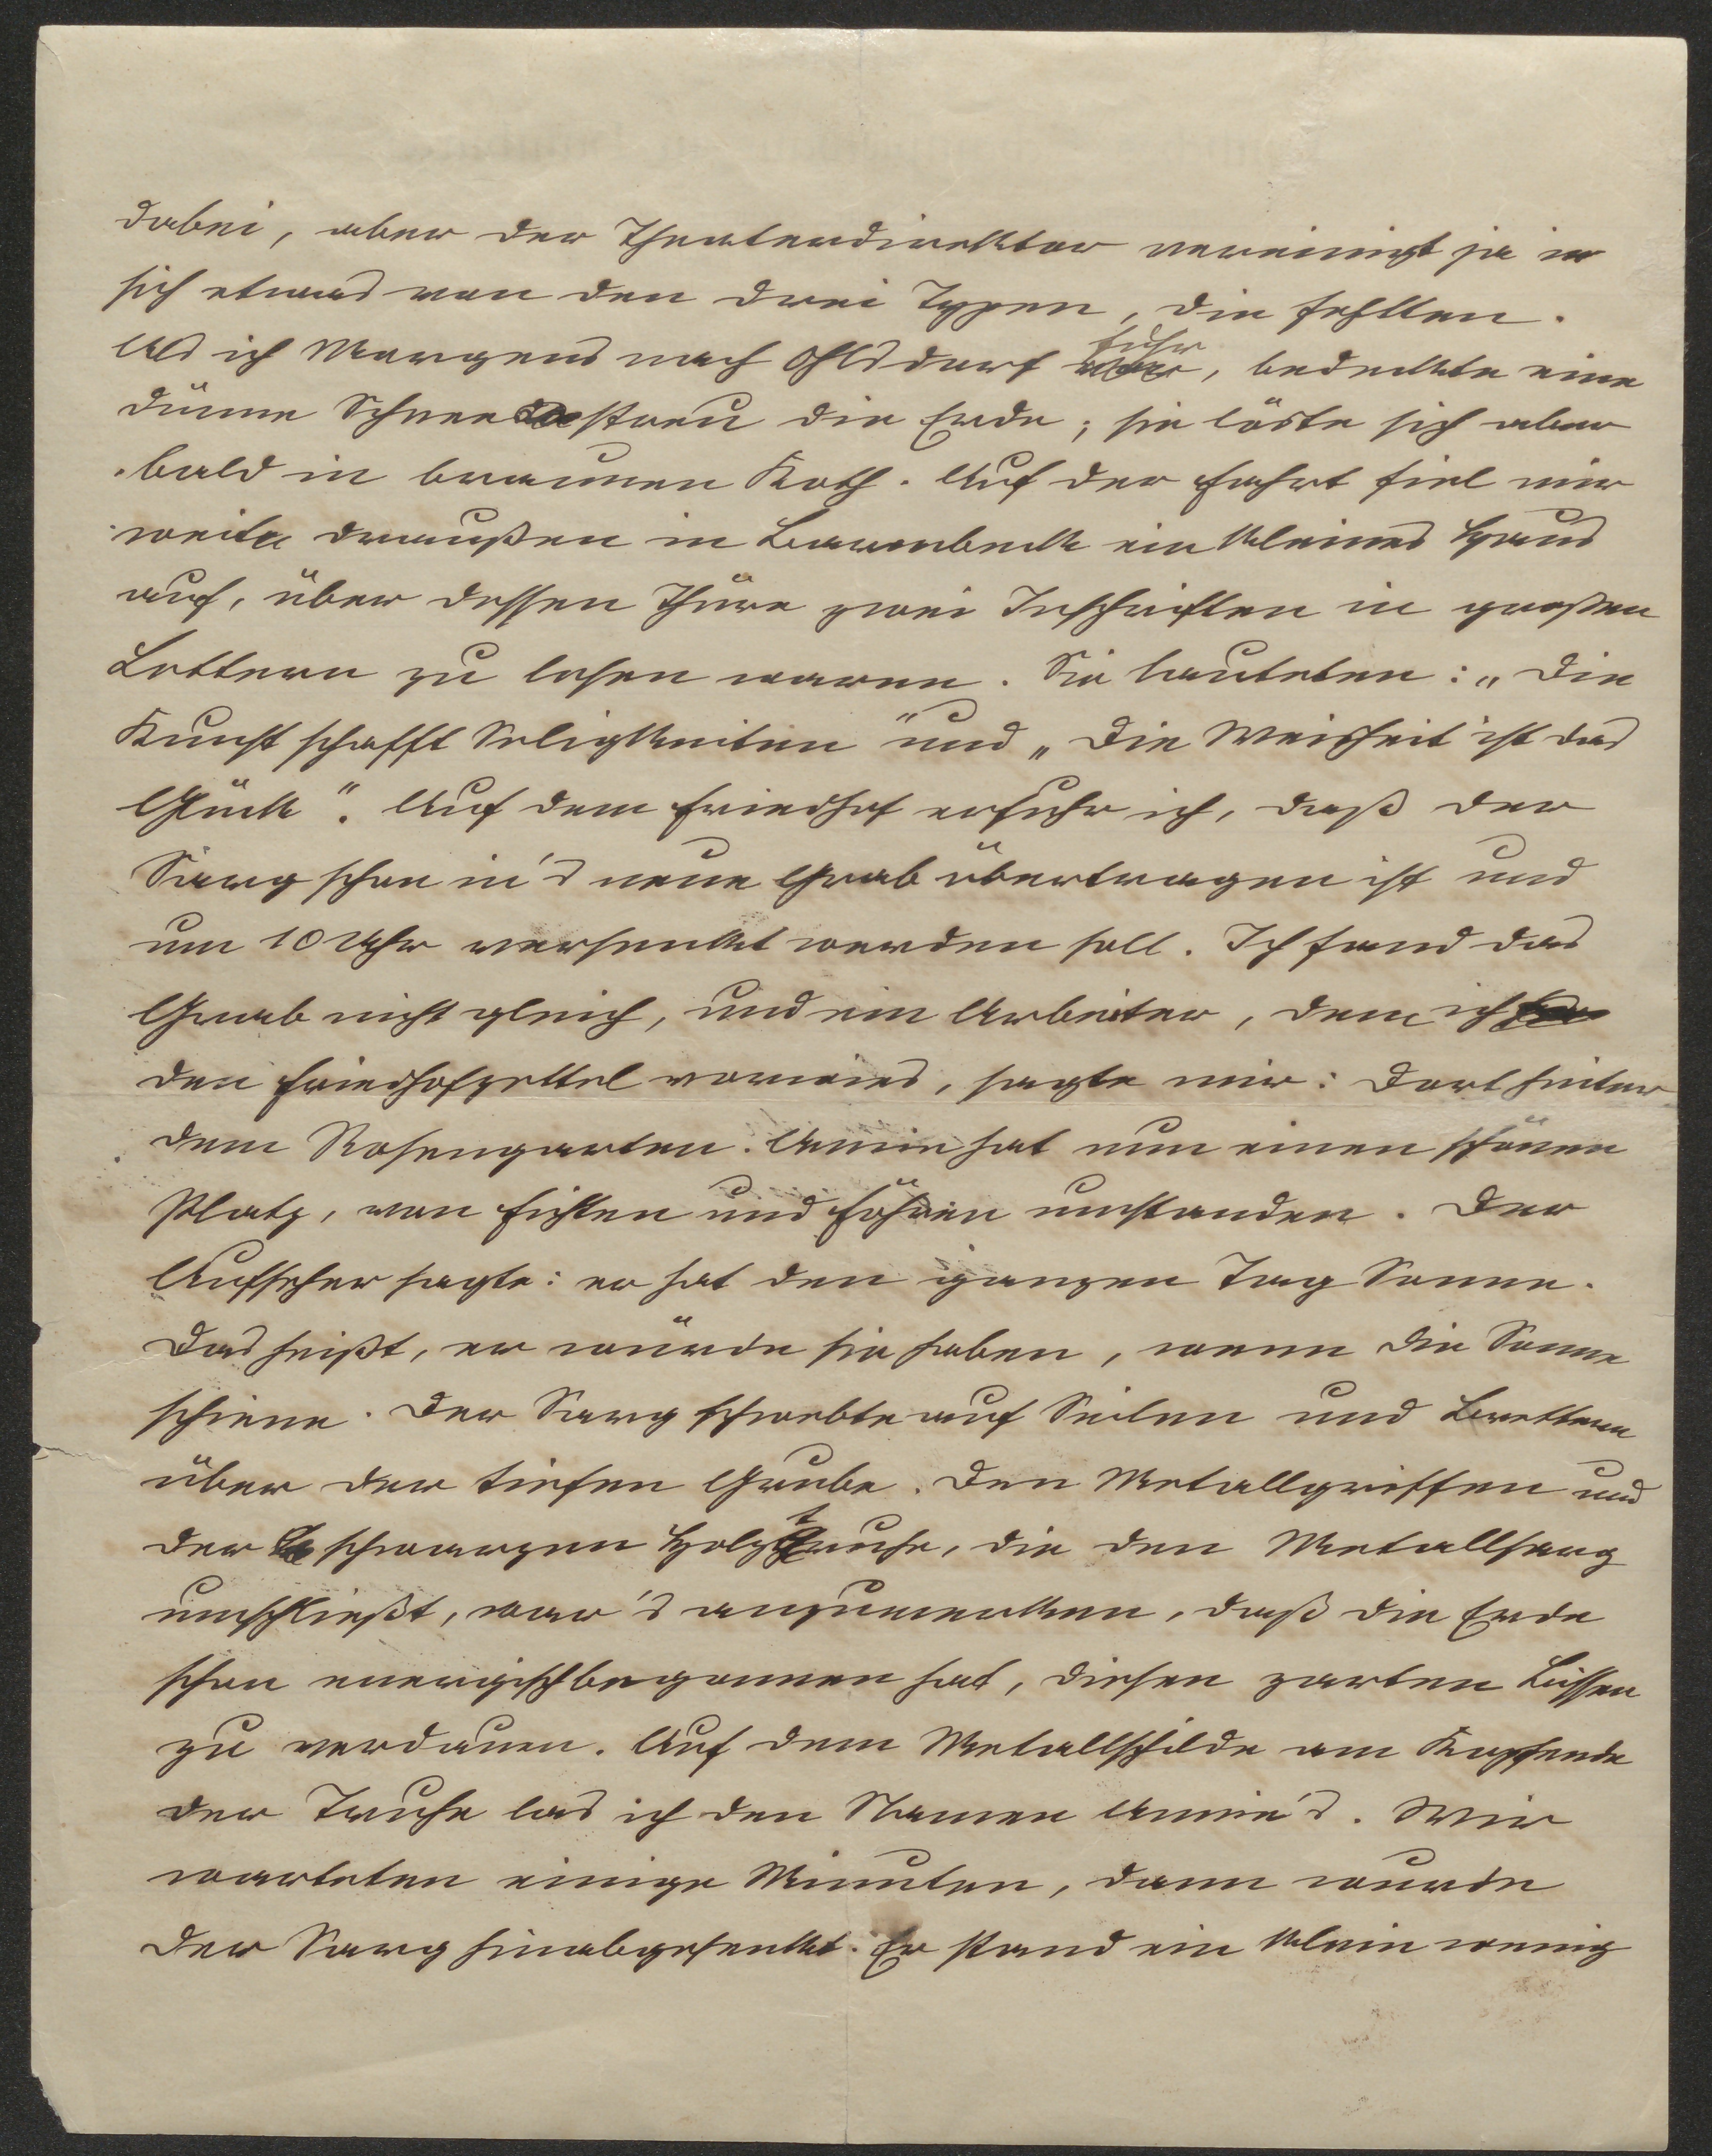 dabei, aber der Theaterdirektor vereinigt ja in
sich etwas von den drei Typen, die fehlten.
Als ich Morgens nach Ohlsdorf fuhr, bedeckte eine
dünne Schneestreu die Erde; sie löste sich aber
bald in braunen Koth. Auf der Fahrt fiel mir
weit draußen in Barmbeck ein kleines Haus
auf, über dessen Thüre zwei Inschriften in großen
Lettern zu lesen waren. Sie lauteten: „Die
Kunst schafft Seligkeiten" und „Die Weisheit ist das
Glück". Auf dem Friedhof erfuhr ich, daß der
Sarg schon in's neue Grab übertragen ist und
um 10 Uhr versenkt werden soll. Ich fand das
Grab nicht gleich, und ein Arbeiter, dem ich
den Friedhofzettel vorwies, sagte mir: Dort hinter
dem Rosengarten. Annie hat nun einen schönen
Platz, von Fichten und Föhren umstanden. Der
Aufseher sagte: er hat den ganzen Tag Sonne.
Das heißt, er würde sie haben, wenn die Sonne
schiene. Der Sarg schwebte auf Seilen und Brettern
über der tiefen Grube. Den Metallgriffen und
der schwarzen Holztruhe, die den Metallsarg
umschließt, war's anzumerken, daß die Erde
schon energisch begonnen hat, diesen zarten Bissen
zu verdauen. Auf dem Metallschilde am Kopfende
der Truhe las ich den Namen Annie's. Wir
warteten einige Minuten, dann wurde
der Sarg hinabgesenkt. Er stand ein klein wenig